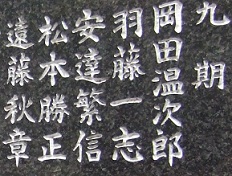 九期
岡田温次郎
羽藤一志
安達繁信
松本勝正
遠藤秋章